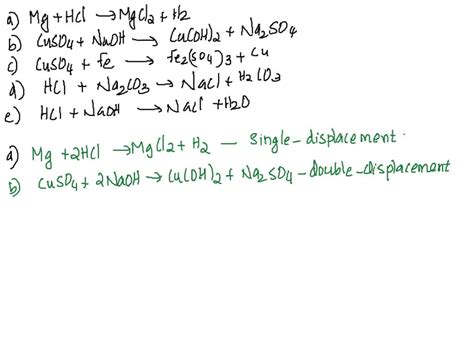 a) Mg + HCl → MgCl2 + H2
b) CuSO4 + NaOH → Cu(OH)2 + Na2SO4
c) CuSO4 + Fe → Fe2(SO4)3 + Cu
d) HCl + Na2CO3 → NaCl + H2CO3
e) HCl + NaOH → NaCl + H2O
a) Mg + 2HCl → MgCl2 + H2 – Single-displacement.
b) CuSO4 + 2NaOH → Cu(OH)2 + Na2SO4 – double-displacement